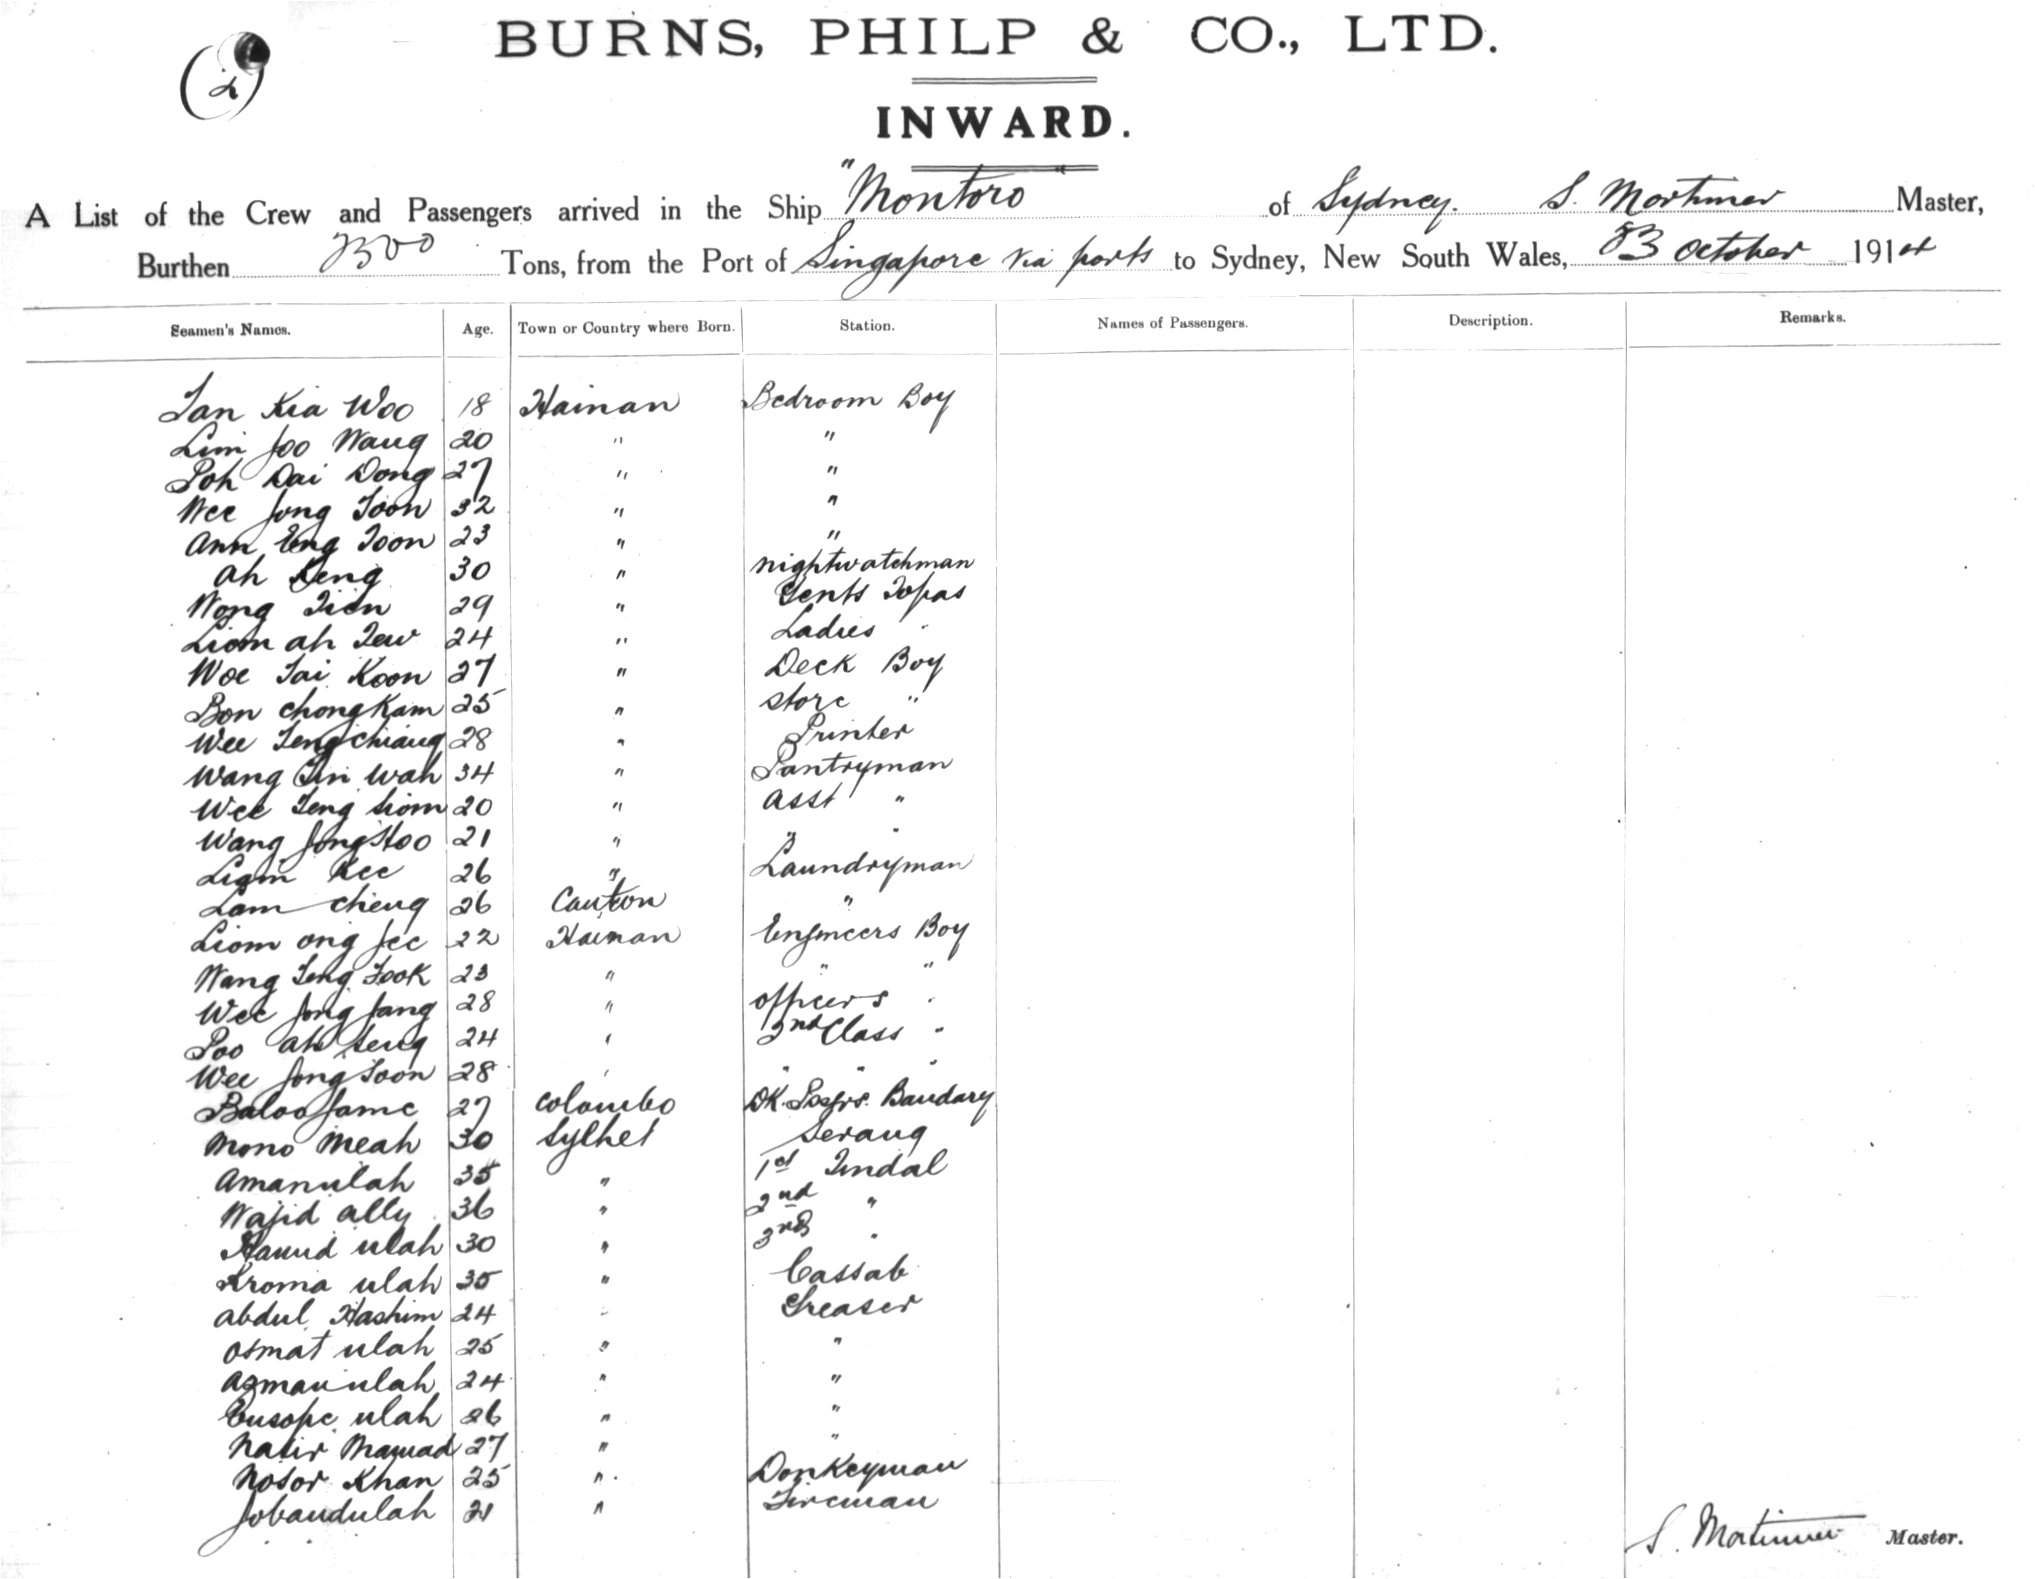 (2)
BURNS, PHILP & CO., LTD.
INWARD.
A List of the Crew and Passengers arrived in the Ship "Montoro" of Sydney. S. Mortimer Master,
Burthen Tons, from the Port of Singapore via ports to Sydney, New South Wales, October 1914
Seamen's Names. Age. Town or Country where Born. Station. Names of Passengers. Description. Remarks.
Tan Kia Woo 18 Hainan Bedroom Boy
Lim Joo Wang 20 " "
Poh Dai Dong 27 " "
Wee Jong Toon 32 " "
Ann Eng Toon 23 " "
Ah Keng 30 " nightwatchman
Wong Tien 29 " Gents Topas
Liom ah Tew 24 " Ladies "
Woe Tai Koon 27 " Deck Boy
Bon Chong Kam 25 " Store "
Wee Teng Chiang 28 " Printer
Wang Tin Wah 34 " Pantryman
Wee Teng Siom 20 " Asst "
Wang Jong Hoo 21 " " "
Ligm Kee 26 " Laundryman
Lam Cheng 26 Canton "
Liom ong Jee 22 Hainan Engineers Boy
Wang Teng Fook 23 " " "
Wee Jong Jang 28 " officers "
Poo ah Seng 24 " 2nd Class "
Wee Jong Toon 28 " " " "
Baloo Jame 27 Colombo DK. Psgrs. Bandary
Mono Meah 30 Sylhet Serang
Amanulah 35 " 1st Tindal
Wajid ally 36 " 2nd "
Hamid ulah 30 " 3rd "
Kroma ulah 35 " Cassab
Abdul Hashim 24 " Greaser
Osmat ulah 25 " "
Azman ulah 24 " "
Eusope ulah 26 " "
Nasir Mamad 27 " "
Nosor Khan 25 " Donkeyman
Jobandulah 21 " Fireman
S. Mortimer Master.